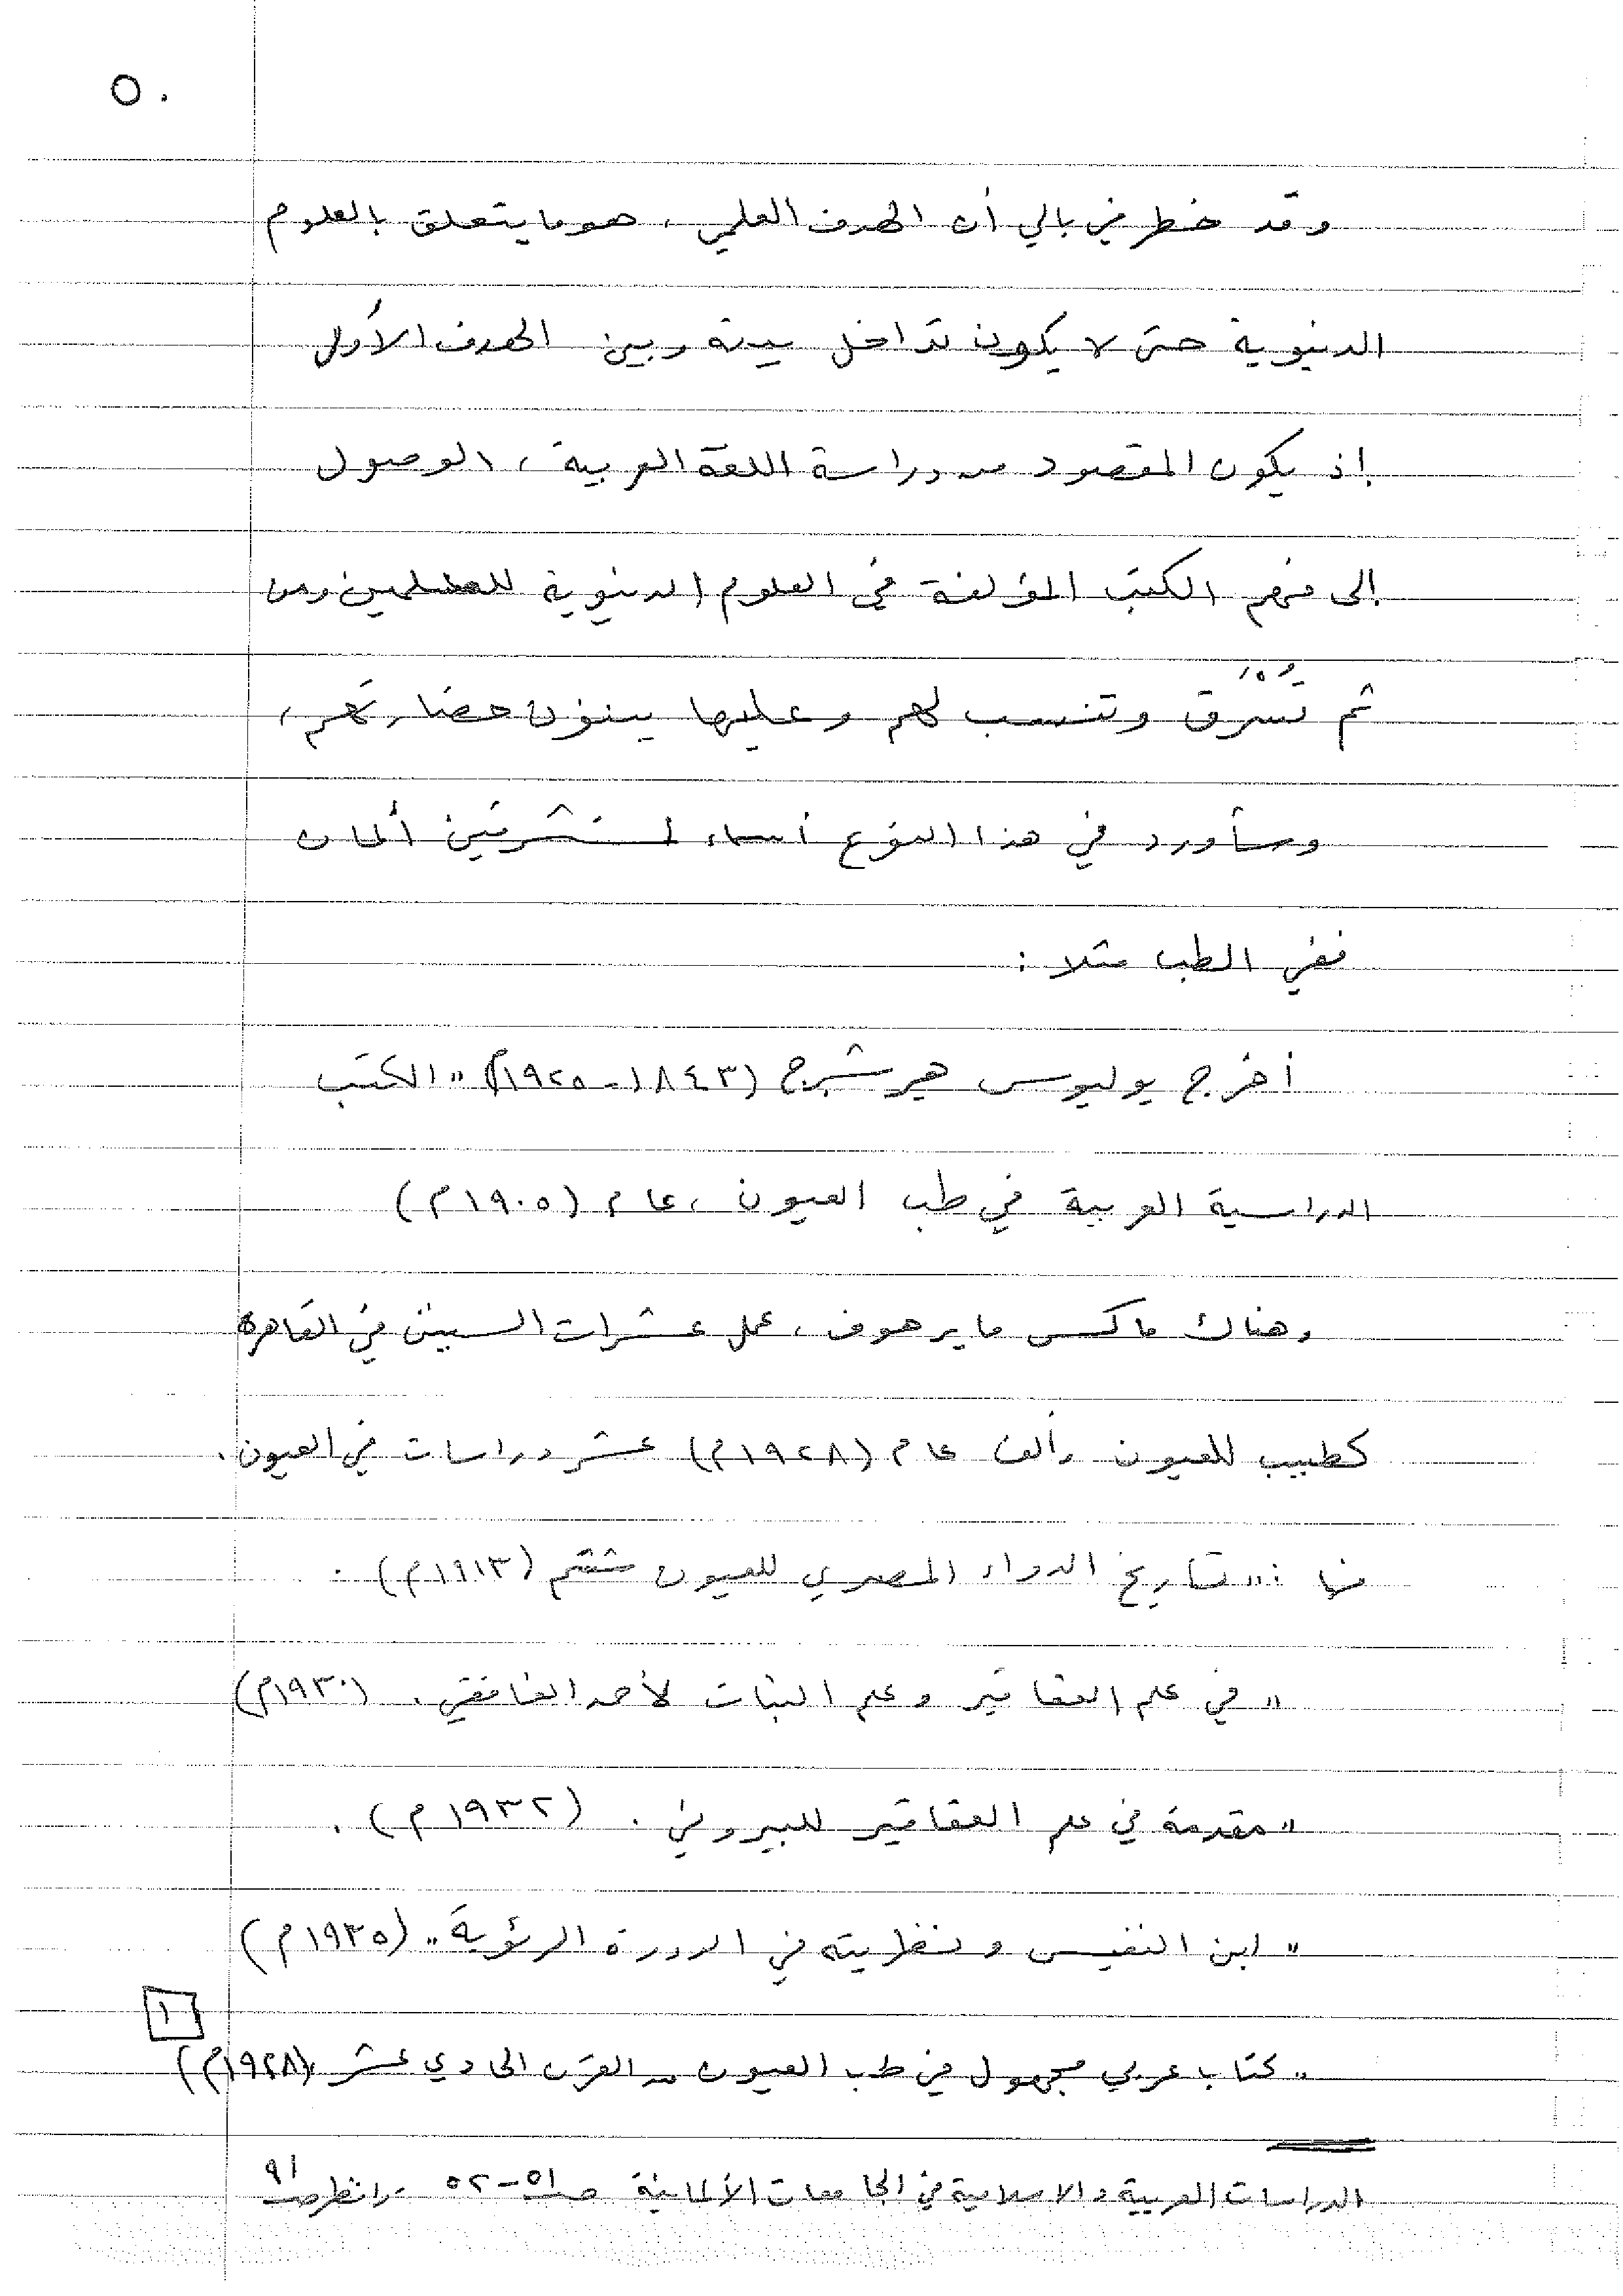 ٥٠
وقد خطر في بالي أن الهدف العلمي ، هو ما يتعلق بالعلوم
الدنيوية حتى لا يكون تداخل بينه وبين الهدف الأول
إذ يكون المقصود من دراسة اللغة العربية ، الوصول
إلى فهم الكتب المؤلفة في العلوم الدنيوية للمسلمين ومن
ثم تُسْرَق وتنسب لهم وعليها يبنون حضارتهم ،
وسأورد في هذا النوع أسماء لمستشرقين ألمان
ففي الطب مثلا :
أخرج يوليوس هيرشبرج (١٨٤٣-١٩٢٥م) " الكتب
الدراسية العربية في طب العيون ، عام (١٩٠٥م)
وهناك ماكس مايرهوف ، عمل عشرات السنين في القاهرة
كطبيب للعيون وألف عام (١٩٢٨م) عشر دراسات في العيون .
منها : " تاريخ الدواء المصري للعيون ششم (١٩١٣م) .
" في علم العقاقير وعلم النبات لأحمد الغافقي . (١٩٣٠م)
" مقدمة في علم العقاقير للبيروني . (١٩٣٢م) .
" ابن النفيس ونظريته في الدورة الرئوية " (١٩٣٥م)
" كتاب عربي مجهول في طب العيون من القرن الحادي عشر ، (١٩٢٨م) ١
الدراسات العربية والاسلامية في الجامعات الألمانية صـ ٥١-٥٢ وانظر صـ ٩١